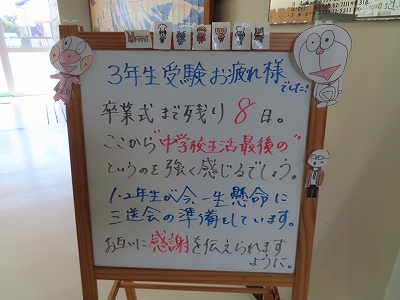 3年生受験お疲れ様
でした！
卒業式まで残り8日。
ここから"中学校生活最後の"
というのを強く感じるでしょう。
1.2年生が今、一生懸命に
三送会の準備をしています。
お互いに感謝を伝えられます
ように。